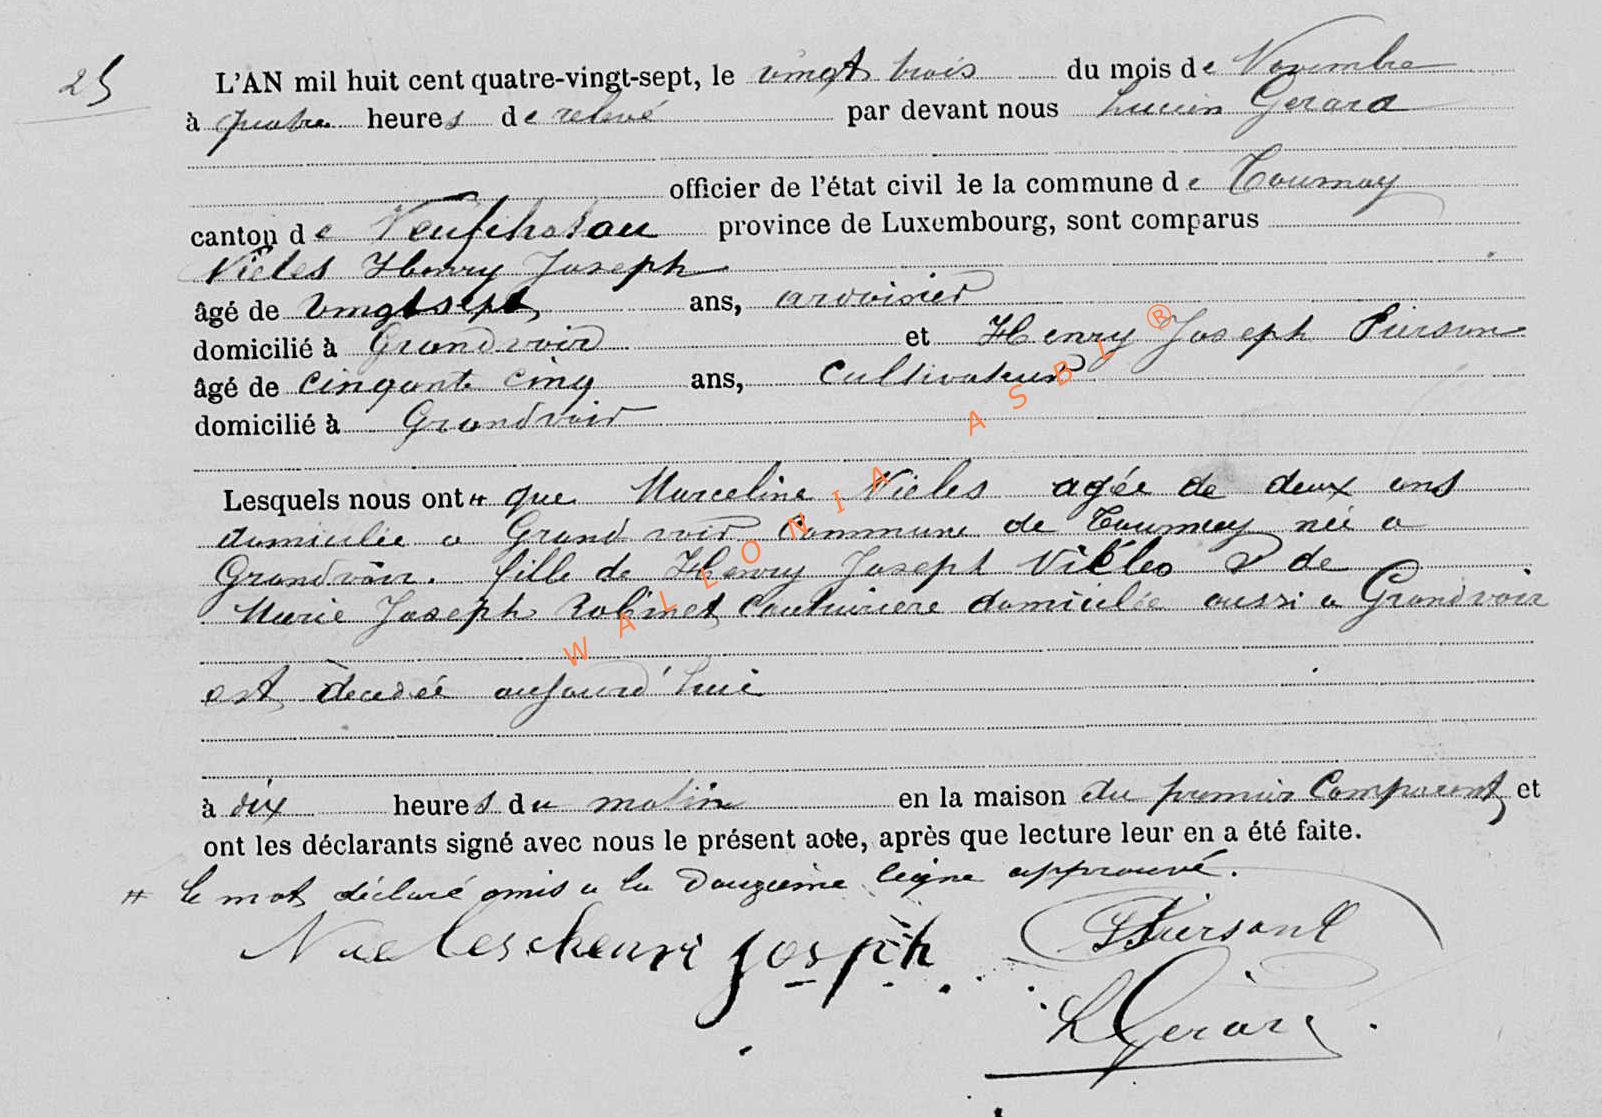 25
L'AN mil huit cent quatre-vingt-sept, le vingt trois du mois de Novembre
à quatre heures de relevé par devant nous Lucien Gerard
officier de l'état civil de la commune de Tournay
canton de Neufchateau province de Luxembourg, sont comparus
Nieles Henry Joseph
âgé de vingt sept ans, ardoisier
domicilié à Grandvoir et Henry Joseph Pierson
âgé de cinqante cinq ans, Cultivateur
domicilié à Grandvoir
Lesquels nous ont # que Marceline Nieles agée de deux ans
domiciliée a Grandvoir Commune de Tournay née a
Grandvoir. fille de Henry Joseph & de
Marie Joseph Robinet Couturiere domiciliée aussi a Grandvoir
est décedée aujourd'hui
à dix heures du matin en la maison du premier Comparent et
ont les déclarants signé avec nous le présent acte, après que lecture leur en a été faite.
# le mot déclaré omis a la douzième ligne approuvé.
henri joseph
L Gerard
WALLONIA ASBL ®